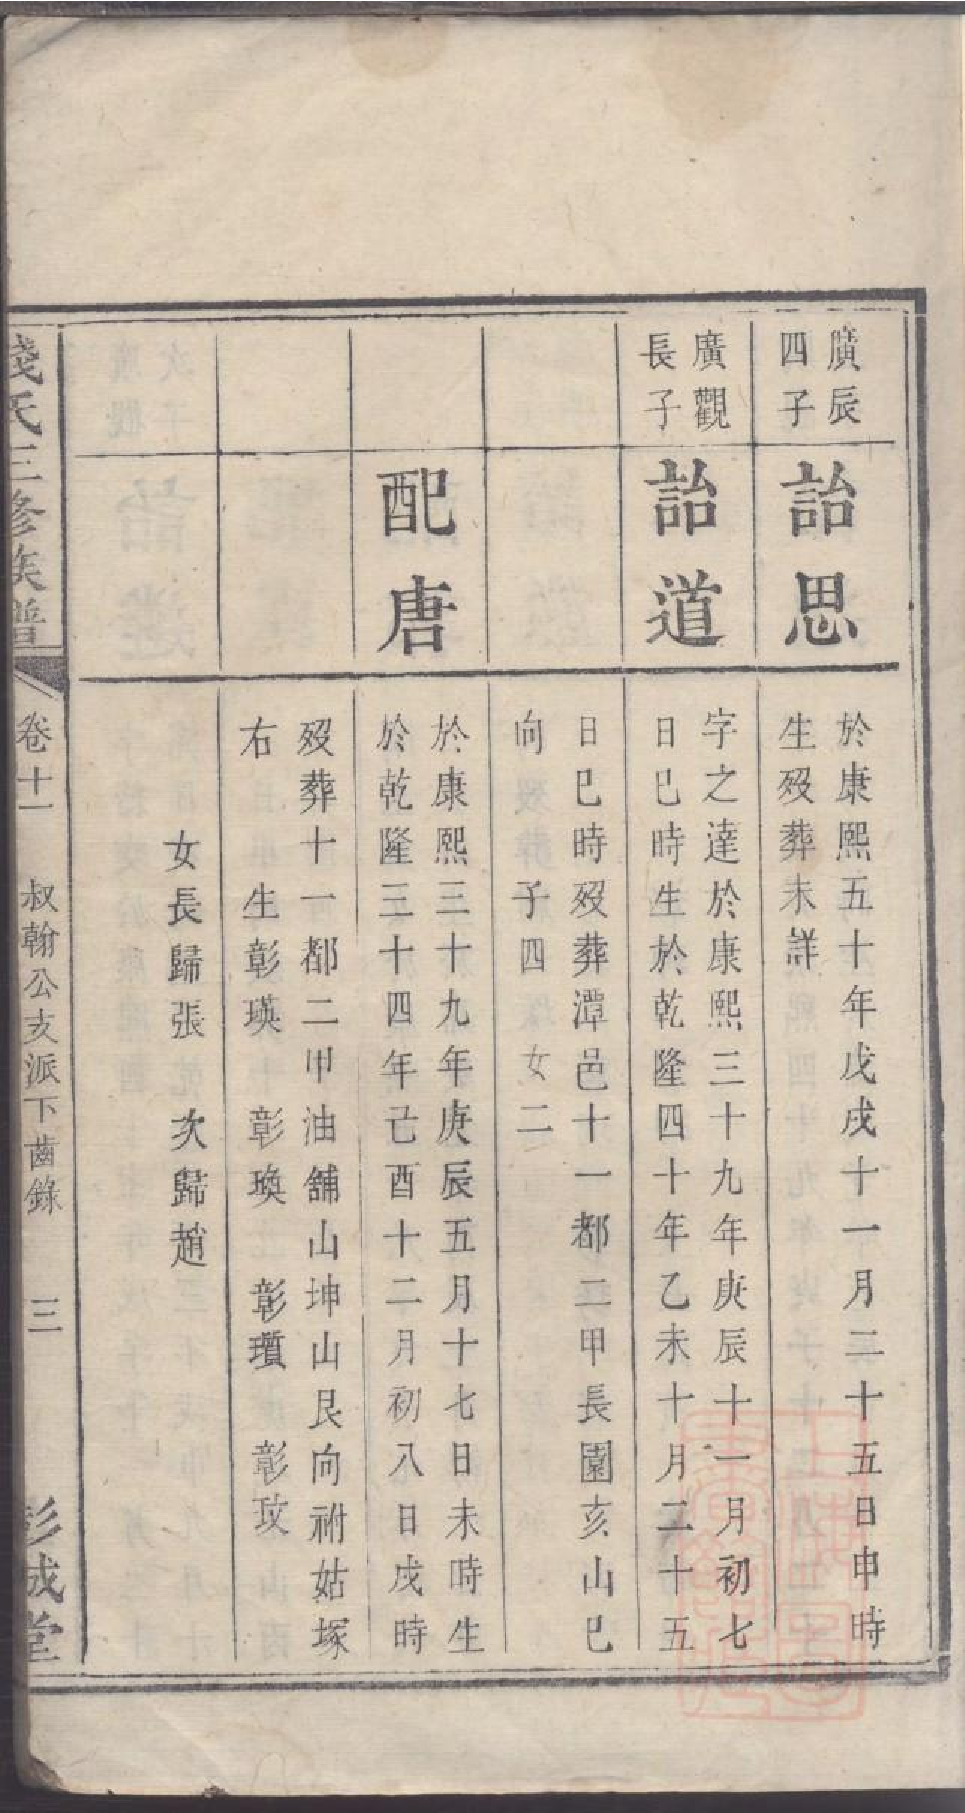 廣辰
四子
詒思
於康熙五十年戊戌十一月二十五日申時
生歿葬未詳
廣觀
長子
詒道
字之達於康熙三十九年庚辰十一月初七
日巳時生於乾隆四十年乙未十月二十五
日巳時歿葬潭邑十一都二甲長園亥山巳
向　子四　女二
配唐
於康熙三十九年庚辰五月十七日未時生
於乾隆三十四年己酉十二月初八日戌時
歿葬十一都二甲油舖山坤山艮向祔姑塚
右　生彰瑛　彰瑍　彰瓚　彰玟
女長歸張　次歸趙
錢氏三修族譜
卷十一
叔翰公支派下齒錄
三
彭城堂